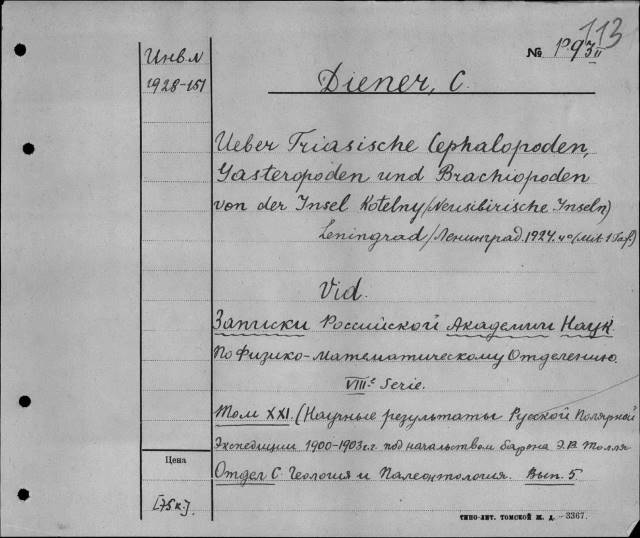 113
Инв. №
1928-151
№ p. 93 II
Diener, C.
Ueber Triasische Cephalopoden,
Gasteropoden und Brachiopoden
von der Insel Kotelny (Neusibirische Inseln)
Leningrad/Ленинград. 1924. 4° (Mit 1 Taf.)
Vid.
Записки Российской Академии Наук
По Физико-Математическому Отделению.
VIII-e Serie.
Том XXI. (Научные результаты Русской Полярной
Экспедиции 1900-1903 г.г. под начальством барона Э.В. Толля
Отдел С. Геология и Палеонтология. Вып. 5.
Цена
[75 к.].
ТИПО-ЛИТ. ТОМСКОЙ Ж. Д. - 3367.